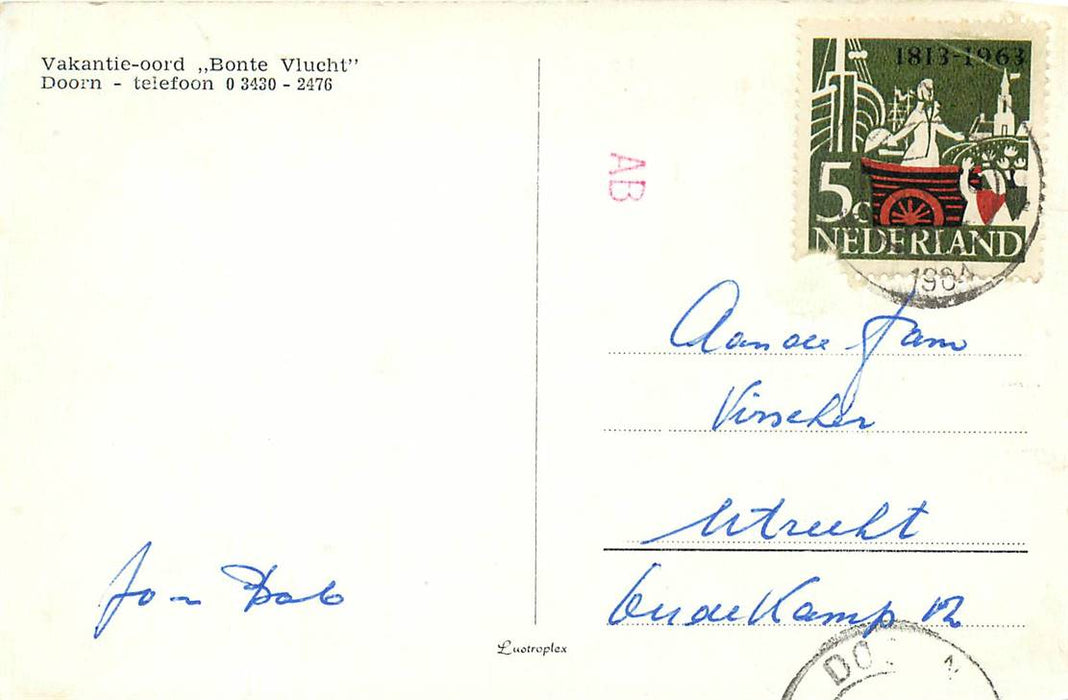 Vakantie-oord „Bonte Vlucht”
Doorn - telefoon 0 3430 - 2476
AB
1813-1963
5c
NEDERLAND
1964
Aan de fam
Visscher
Utrecht
Oude Kamp 12
Jo n Bob
Lustroplex
DO N